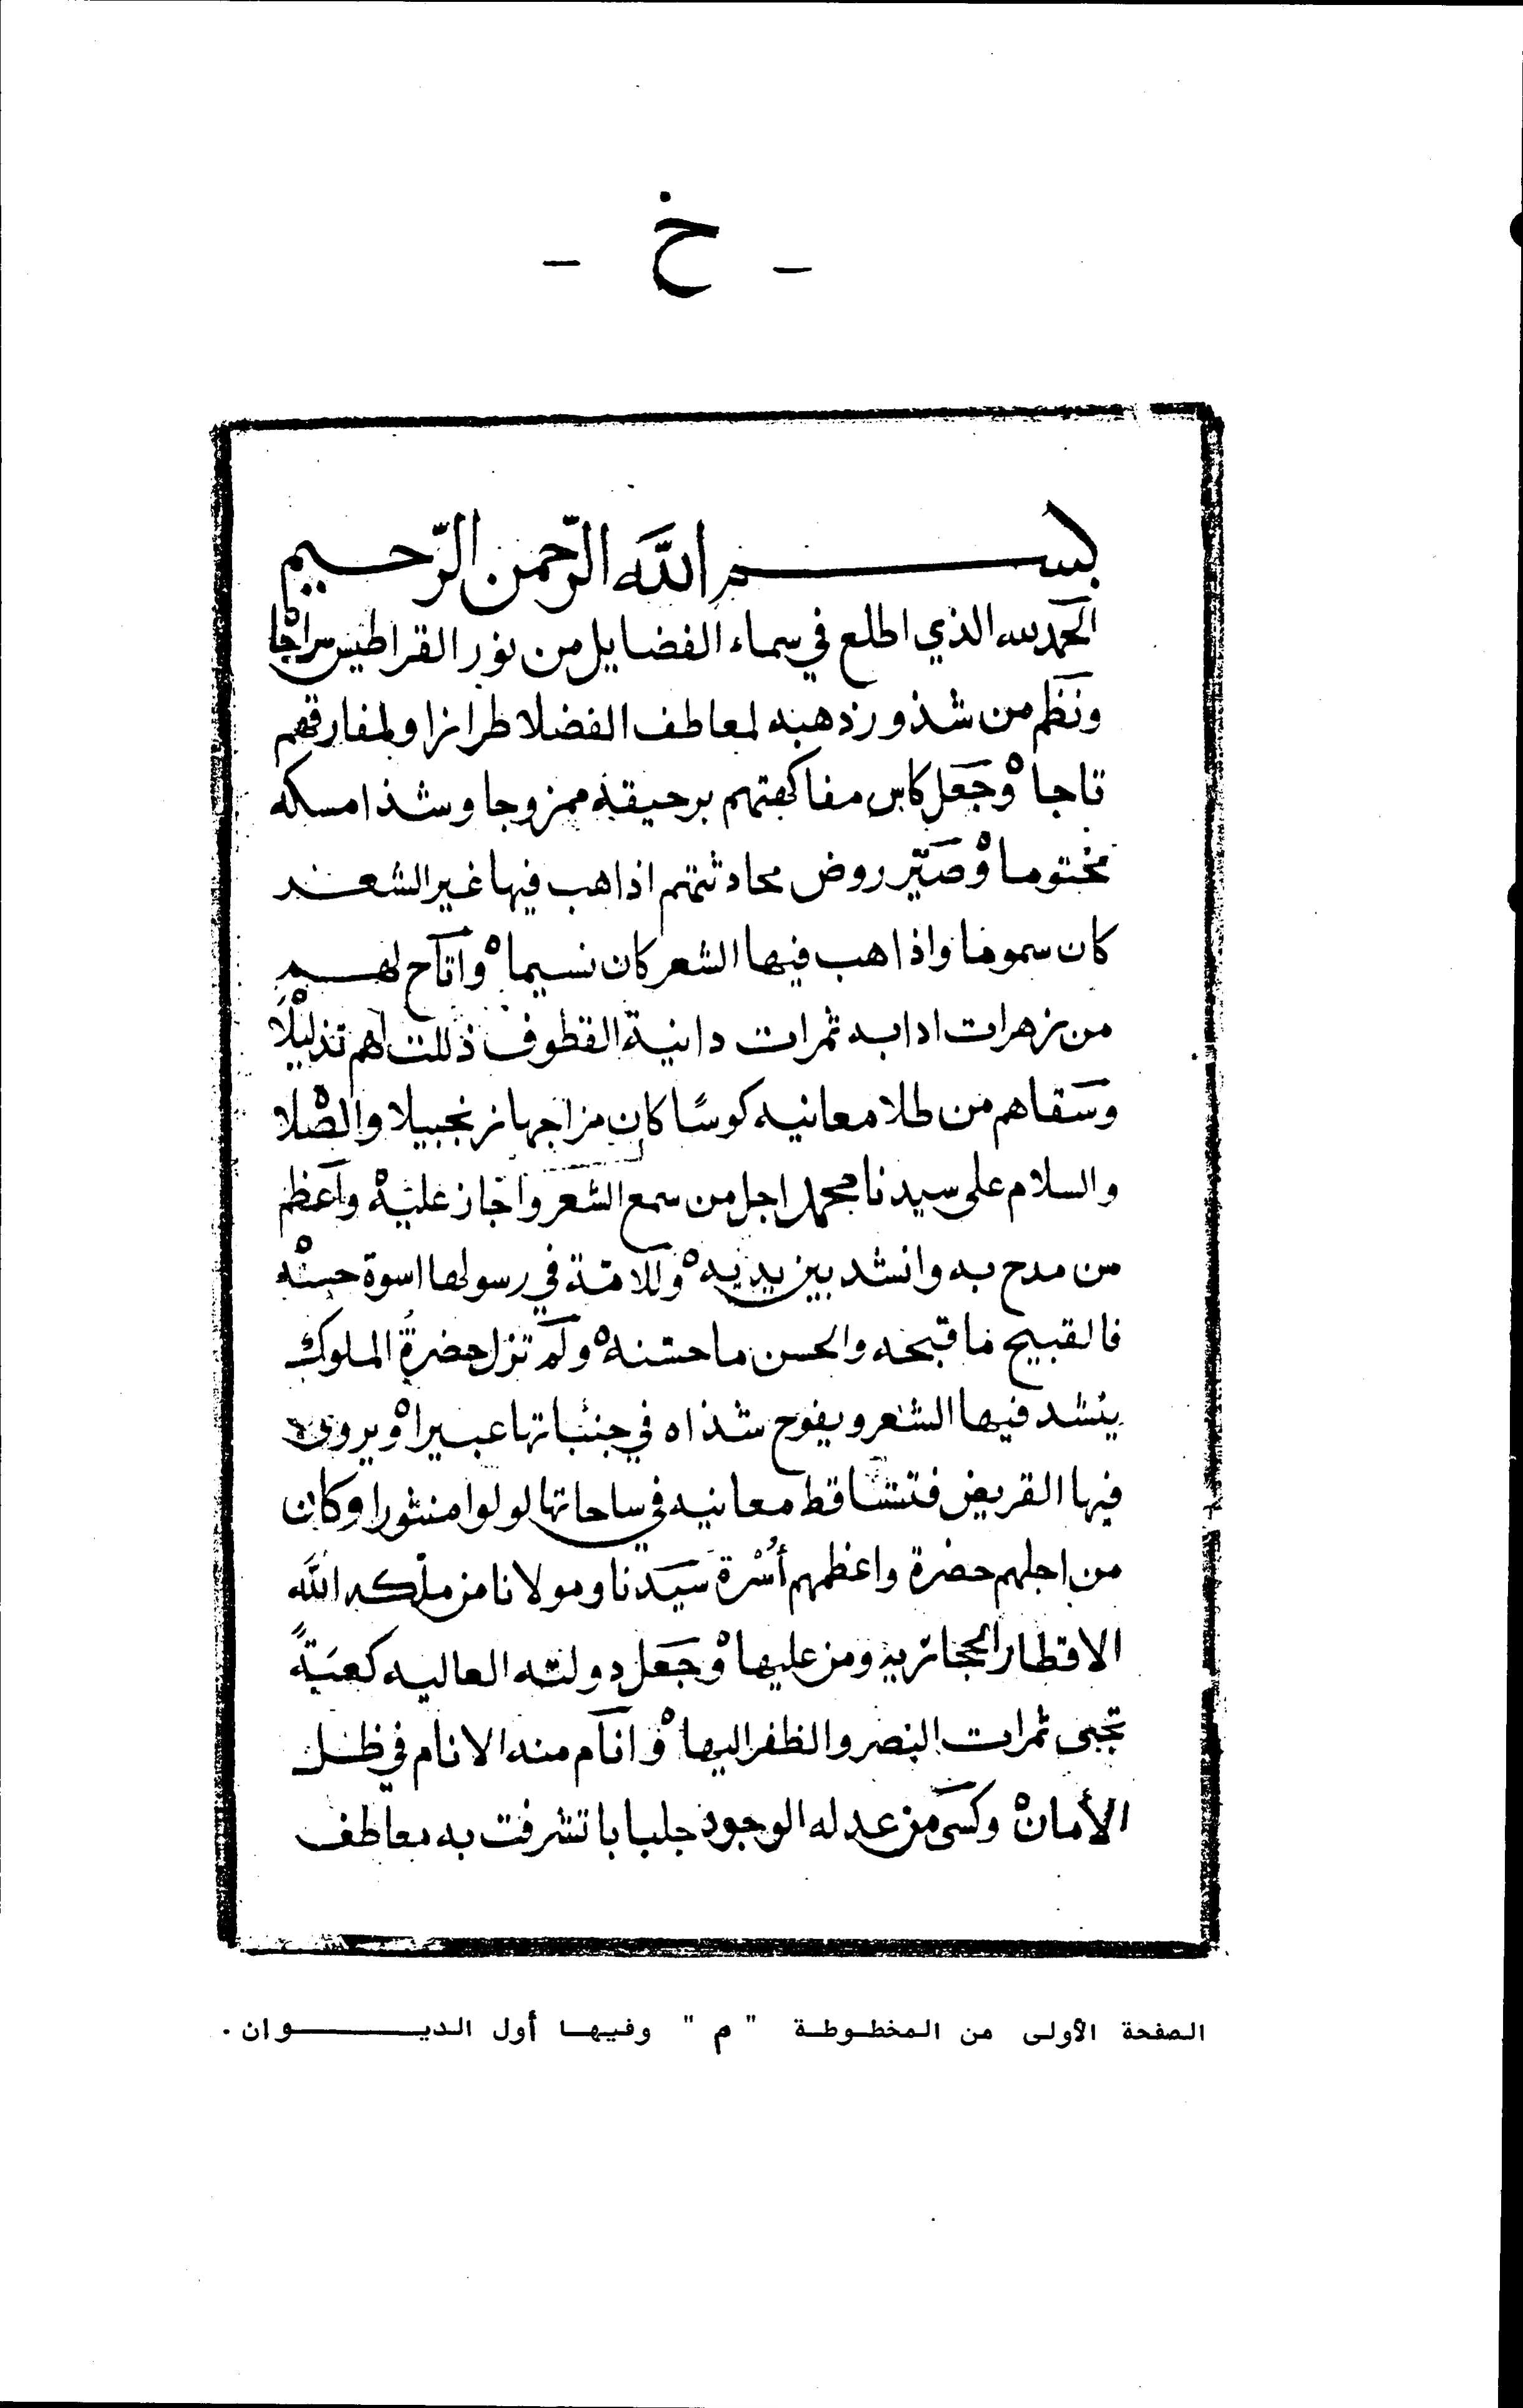 - خ -
بسم الله الرّحمن الرّحيم
الحمد لله الذي اطلع في سماء الفضايل من نور القراطيس سراجا
ونَظَم من شذور ذهبه لمعاطف الفضلا طرازا ولمفارقهم
تاجا وجَعَل كاس مفاكهتهم برحيقه ممزوجا وشذا مسكه
مختوما وصَيّر روض محادثتهم اذا هب فيها غير الشعر
كان سموما واذا هب فيها الشعر كان نسيما واتاح لهم
من زهرات ادابه ثمرات دانية القطوف ذللت لهم تذليلًا
وسَقاهم من طلا معانيه كوسًا كان مزاجها زنجبيلا والصلاه
والسلام على سيدنا محمد اجل من سمع الشعر واجاز عليه وآعظم
من مدح به وانشد بين يديه وللامّة في رسولها اسوة حسنه
فالقبيح ما قبحه والحسن ما حسّنه ولم تزل حضرةُ الملوك
ينشد فيها الشعر ويفوح شذاه في جنباتها عبيرا ويروى
فيها القريض فتتساقط معانيه في ساحاتها لولوا منثورا وكان
من اجلهم حضرة واعظمهم أُسْرة سَيّدنا ومولانا من ملّكه الله
الاقطار الحجازيه ومن عليها وجَعَل دولته العاليه كعبَةً
تجبى ثمرات النصر والظفر اليها وانآم منه الانام في ظل
الأمان وكسَى من عدله الوجود جلبابا تشرفت به معاطف
الصفحة الأولى من المخطوطة " م " وفيها أول الديوان.